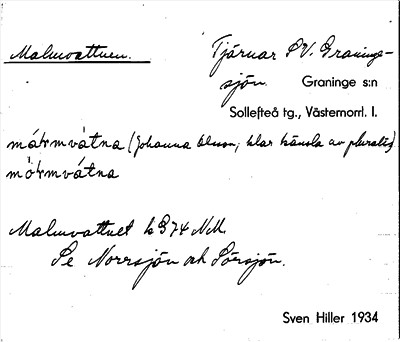 Malmvattnen.
Tjärnar SV. Graninge-
sjön. Graninge s:n
Sollefteå tg., Västernorrl. l.
mátmvátna (Johanna Olsson, klar känsla av pluralis)
mòtmvátna
Malmvattnet k 374 NM.
Se Norrsjön och Sörsjön.
Sven Hiller 1934